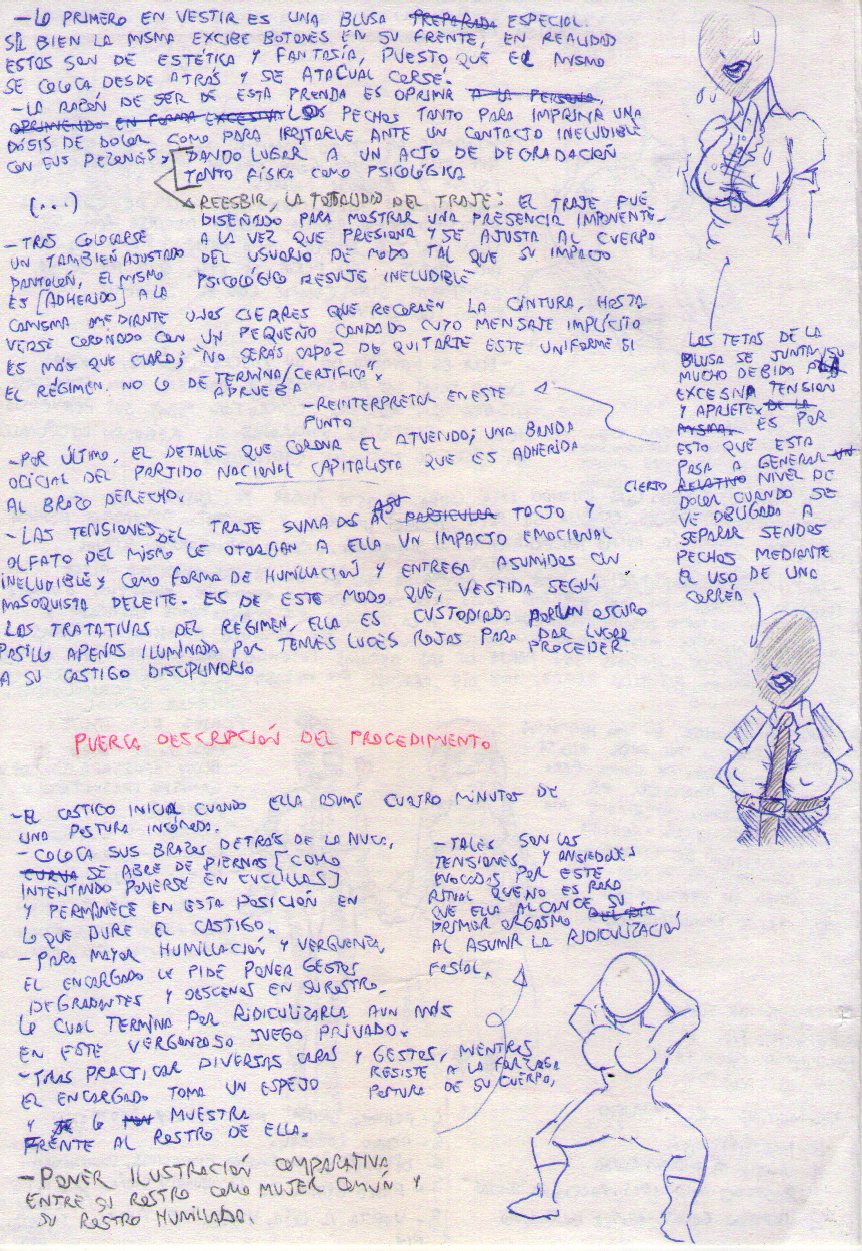 - LO PRIMERO EN VESTIR ES UNA BLUSA PREPARADA ESPECIAL.
SI BIEN LA MISMA EXCIBE BOTONES EN SU FRENTE, EN REALIDAD
ESTOS SON DE ESTÉTICA Y FANTASÍA, PUESTO QUE EL MISMO
SE COLOCA DESDE ATRÁS Y SE ATA CUAL CORSÉ.
- LA RAZÓN DE SER DE ESTA PRENDA ES OPRIMIR A LA PERSONA,
OPRIMIENDO EN FORMA EXCESIVA LOS PECHOS TANTO PARA IMPRIMIR UNA
DÓSIS DE DOLOR COMO PARA IRRITARLE ANTE UN CONTACTO INELUDIBLE
CON SUS PEZONES,
DANDO LUGAR A UN ACTO DE DEGRADACIÓN
TANTO FÍSICA COMO PSICOLÓGICA
(...)
REESBIR, LA TOTALIDAD DEL TRAJE: EL TRAJE FUE
DISEÑADO PARA MOSTRAR UNA PRESENCIA IMPONENTE
A LA VEZ QUE PRESIONA Y SE AJUSTA AL CUERPO
DEL USUARIO DE MODO TAL QUE SU IMPACTO
PSICOLÓGICO RESULTE INELUDIBLE
- TRAS COLOCARSE
UN TAMBIÉN AJUSTADO
PANTALÓN, EL MISMO
ES [ADHERIDO] A LA
CAMISMA MEDIANTE UNOS CIERRES QUE RECORREN LA CINTURA, HASTA
VERSE CORONADO CON UN PEQUEÑO CANDADO CUYO MENSAJE IMPLÍCITO
ES MÁS QUE CLARO; "NO SERÁS CAPAZ DE QUITARTE ESTE UNIFORME SI
EL RÉGIMEN NO LO DETERMINA/CERTIFICA".
APRUEBA
- REINTERPRETAR EN ESTE
PUNTO
- POR ÚLTIMO, EL DETALLE QUE CORONA EL ATUENDO; UNA BANDA
OFICIAL DEL PARTIDO NACIONAL CAPITALISTA QUE ES ADHERIDA
AL BRAZO DERECHO.
- LAS TENSIONES DEL TRAJE SUMADAS AL ASU PARTICULAR TACTO Y
OLFATO DEL MISMO LE OTORGAN A ELLA UN IMPACTO EMOCIONAL
INELUDIBLE, COMO FORMA DE HUMILLACIÓN Y ENTREGA ASUMIDOS CON
MASOQUISTA DELEITE. ES DE ESTE MODO QUE, VESTIDA SEGÚN
LAS TRATATIVAS DEL RÉGIMEN, ELLA ES CUSTODIADA POR UN OSCURO
PASILLO APENAS ILUMINADO POR TENUES LUCES ROJAS PARA DAR LUGAR
PROCEDER
A SU CASTIGO DISCIPLINARIO
LAS TETAS DE LA
BLUSA SE JUNTAN SU
MUCHO DEBIDO A LA
EXCESIVA TENSIÓN
Y APRIETE DE LA
MISMA. ES POR
ESTO QUE ESTA
PASA A GENERAR UN
CIERTO RELATIVO NIVEL DE
DOLOR CUANDO SE
VE OBLIGADA A
SEPARAR SENDOS
PECHOS MEDIANTE
EL USO DE UNA
CORREA
PUERCA DESCRIPCIÓN DEL PROCEDIMIENTO
- EL CASTIGO INICIAL CUANDO ELLA ASUME CUATRO MINUTOS DE
UNA POSTURA INCÓMODA.
- COLOCA SUS BRAZOS DETRÁS DE LA NUCA,
CURVA SE ABRE DE PIERNAS [COMO
INTENTANDO PONERSE EN CUCLILLAS]
Y PERMANECE EN ESTA POSICIÓN EN
LO QUE DURE EL CASTIGO.
- PARA MAYOR HUMILLACIÓN Y VERGÜENZA,
EL ENCARGADO LE PIDE PONER GESTOS
DEGRADANTES Y OBSCENOS EN SU ROSTRO.
LO CUAL TERMINA POR RIDICULIZARLA AUN MÁS
EN ESTE VERGONZOSO JUEGO PRIVADO.
- TRAS PRACTICAR DIVERSAS CARAS Y GESTOS, MIENTRAS
RESISTE A LA FORZADA
POSTURA DE SU CUERPO,
EL ENCARGADO TOMA UN ESPEJO
Y SE LO MUESTRA
FRENTE AL ROSTRO DE ELLA.
- TALES SON LAS
TENSIONES Y ANSIEDADES
EVOCADAS POR ESTE
RITUAL QUE NO ES RARO
QUE ELLA ALCANCE SU
PRIMER ORGASMO DEL DÍA
AL ASUMIR LA RIDICULIZACIÓN
FASIAL.
- PONER ILUSTRACIÓN COMPARATIVA
ENTRE SI ROSTRO COMO MUJER COMÚN Y
SU ROSTRO HUMILLADO.